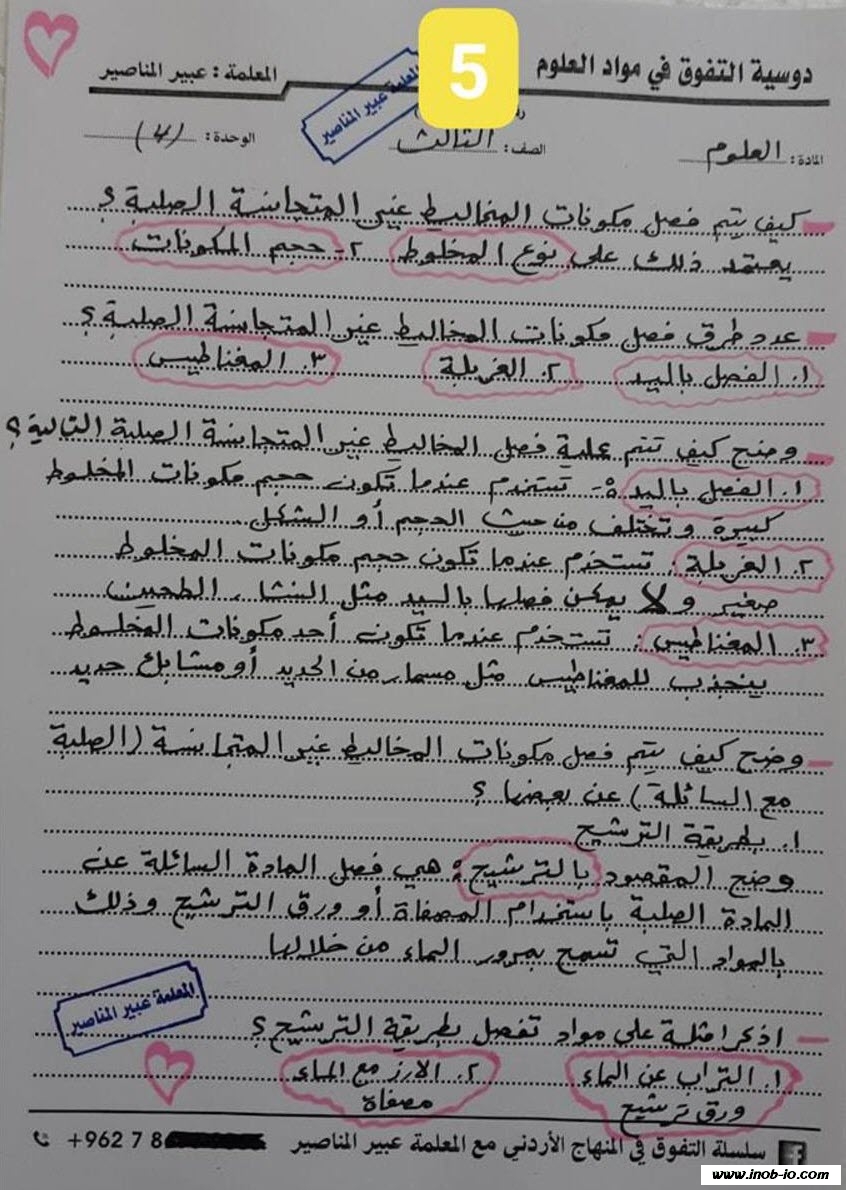 5
دوسية التفوق في مواد العلوم
المعلمة : عبير المناصير
المعلمة عبير المناصير
المادة: العلوم
الصف: الثالث
الوحدة: (4)
كيف يتم فصل مكونات المخاليط غير المتجانسة الصلبة ؟
يعتمد ذلك على نوع المخلوط ٢- حجم المكونات
عدد طرق فصل مكونات المخاليط غير المتجانسة الصلبة ؟
١. الفصل باليد ٢. الغربلة ٣. المغناطيس
وضح كيف تتم عملية فصل المخاليط غير المتجانسة الصلبة التالية ؟
١. الفصل باليد :- تستخدم عندما تكون حجم مكونات المخلوط
كبيرة وتختلف من حيث الحجم أو الشكل.
٢. الغربلة : تستخدم عندما تكون حجم مكونات المخلوط
صغير ولا يمكن فصلها باليد مثل النشا ، الطحين
٣. المغناطيس : تستخدم عندما تكون أحد مكونات المخلوط
ينجذب للمغناطيس مثل مسمار من الحديد أو مشابك حديد
وضح كيف يتم فصل مكونات المخاليط غير المتجانسة (الصلبة
مع السائلة) عن بعضها ؟
١. بطريقة الترشيح
وضح المقصود بالترشيح : هي فصل المادة السائلة عن
المادة الصلبة باستخدام المصفاة أو ورق الترشيح وذلك
بالمواد التي تسمح بمرور الماء من خلالها
المعلمة عبير المناصير
اذكر امثلة على مواد تفصل بطريقة الترشيح ؟
١. التراب عن الماء ٢. الارز مع الماء
ورق ترشيح مصفاة
سلسلة التفوق في المنهاج الأردني مع المعلمة عبير المناصير +962 7 8
www.inob-io.com